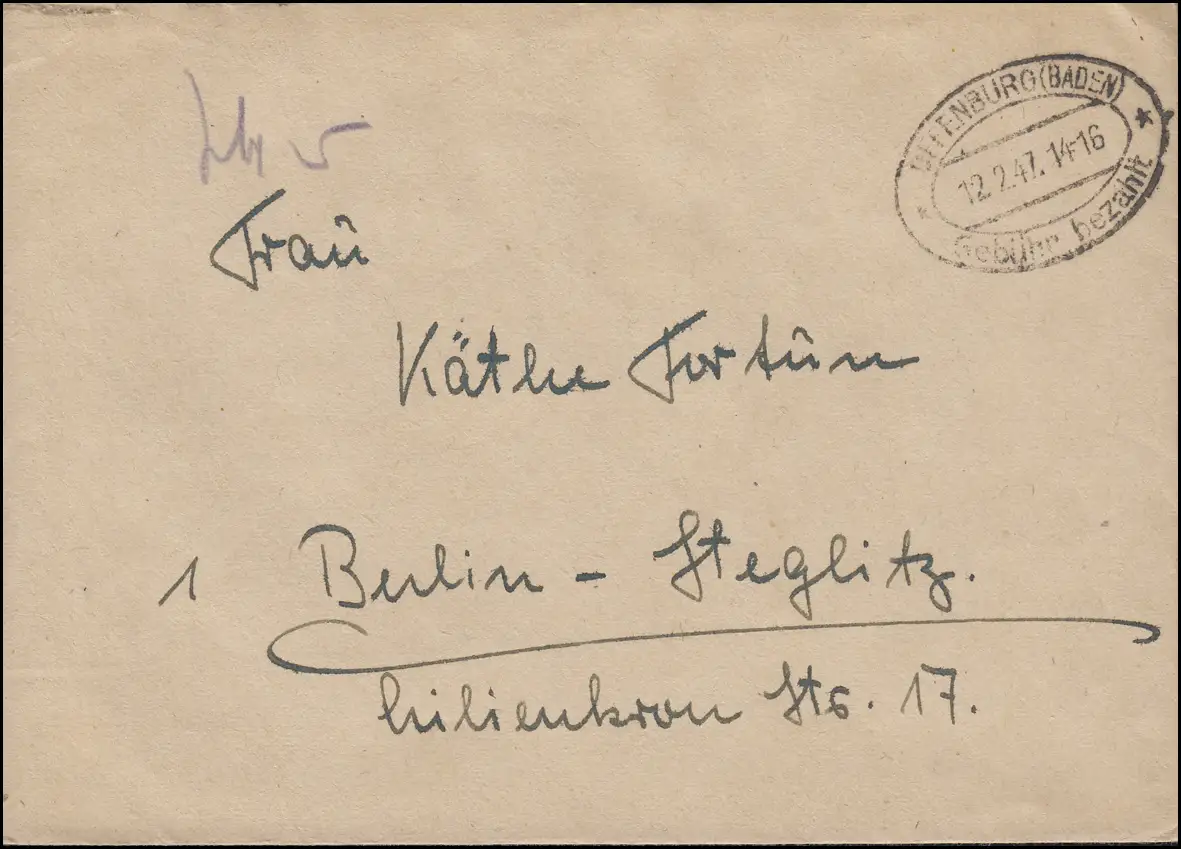 OFFENBURG (BADEN)
12.2.47.14-16
Gebühr bezahlt
Frau
Käthe Fortun
1 Berlin - Steglitz.
Lilienkron Str. 17.